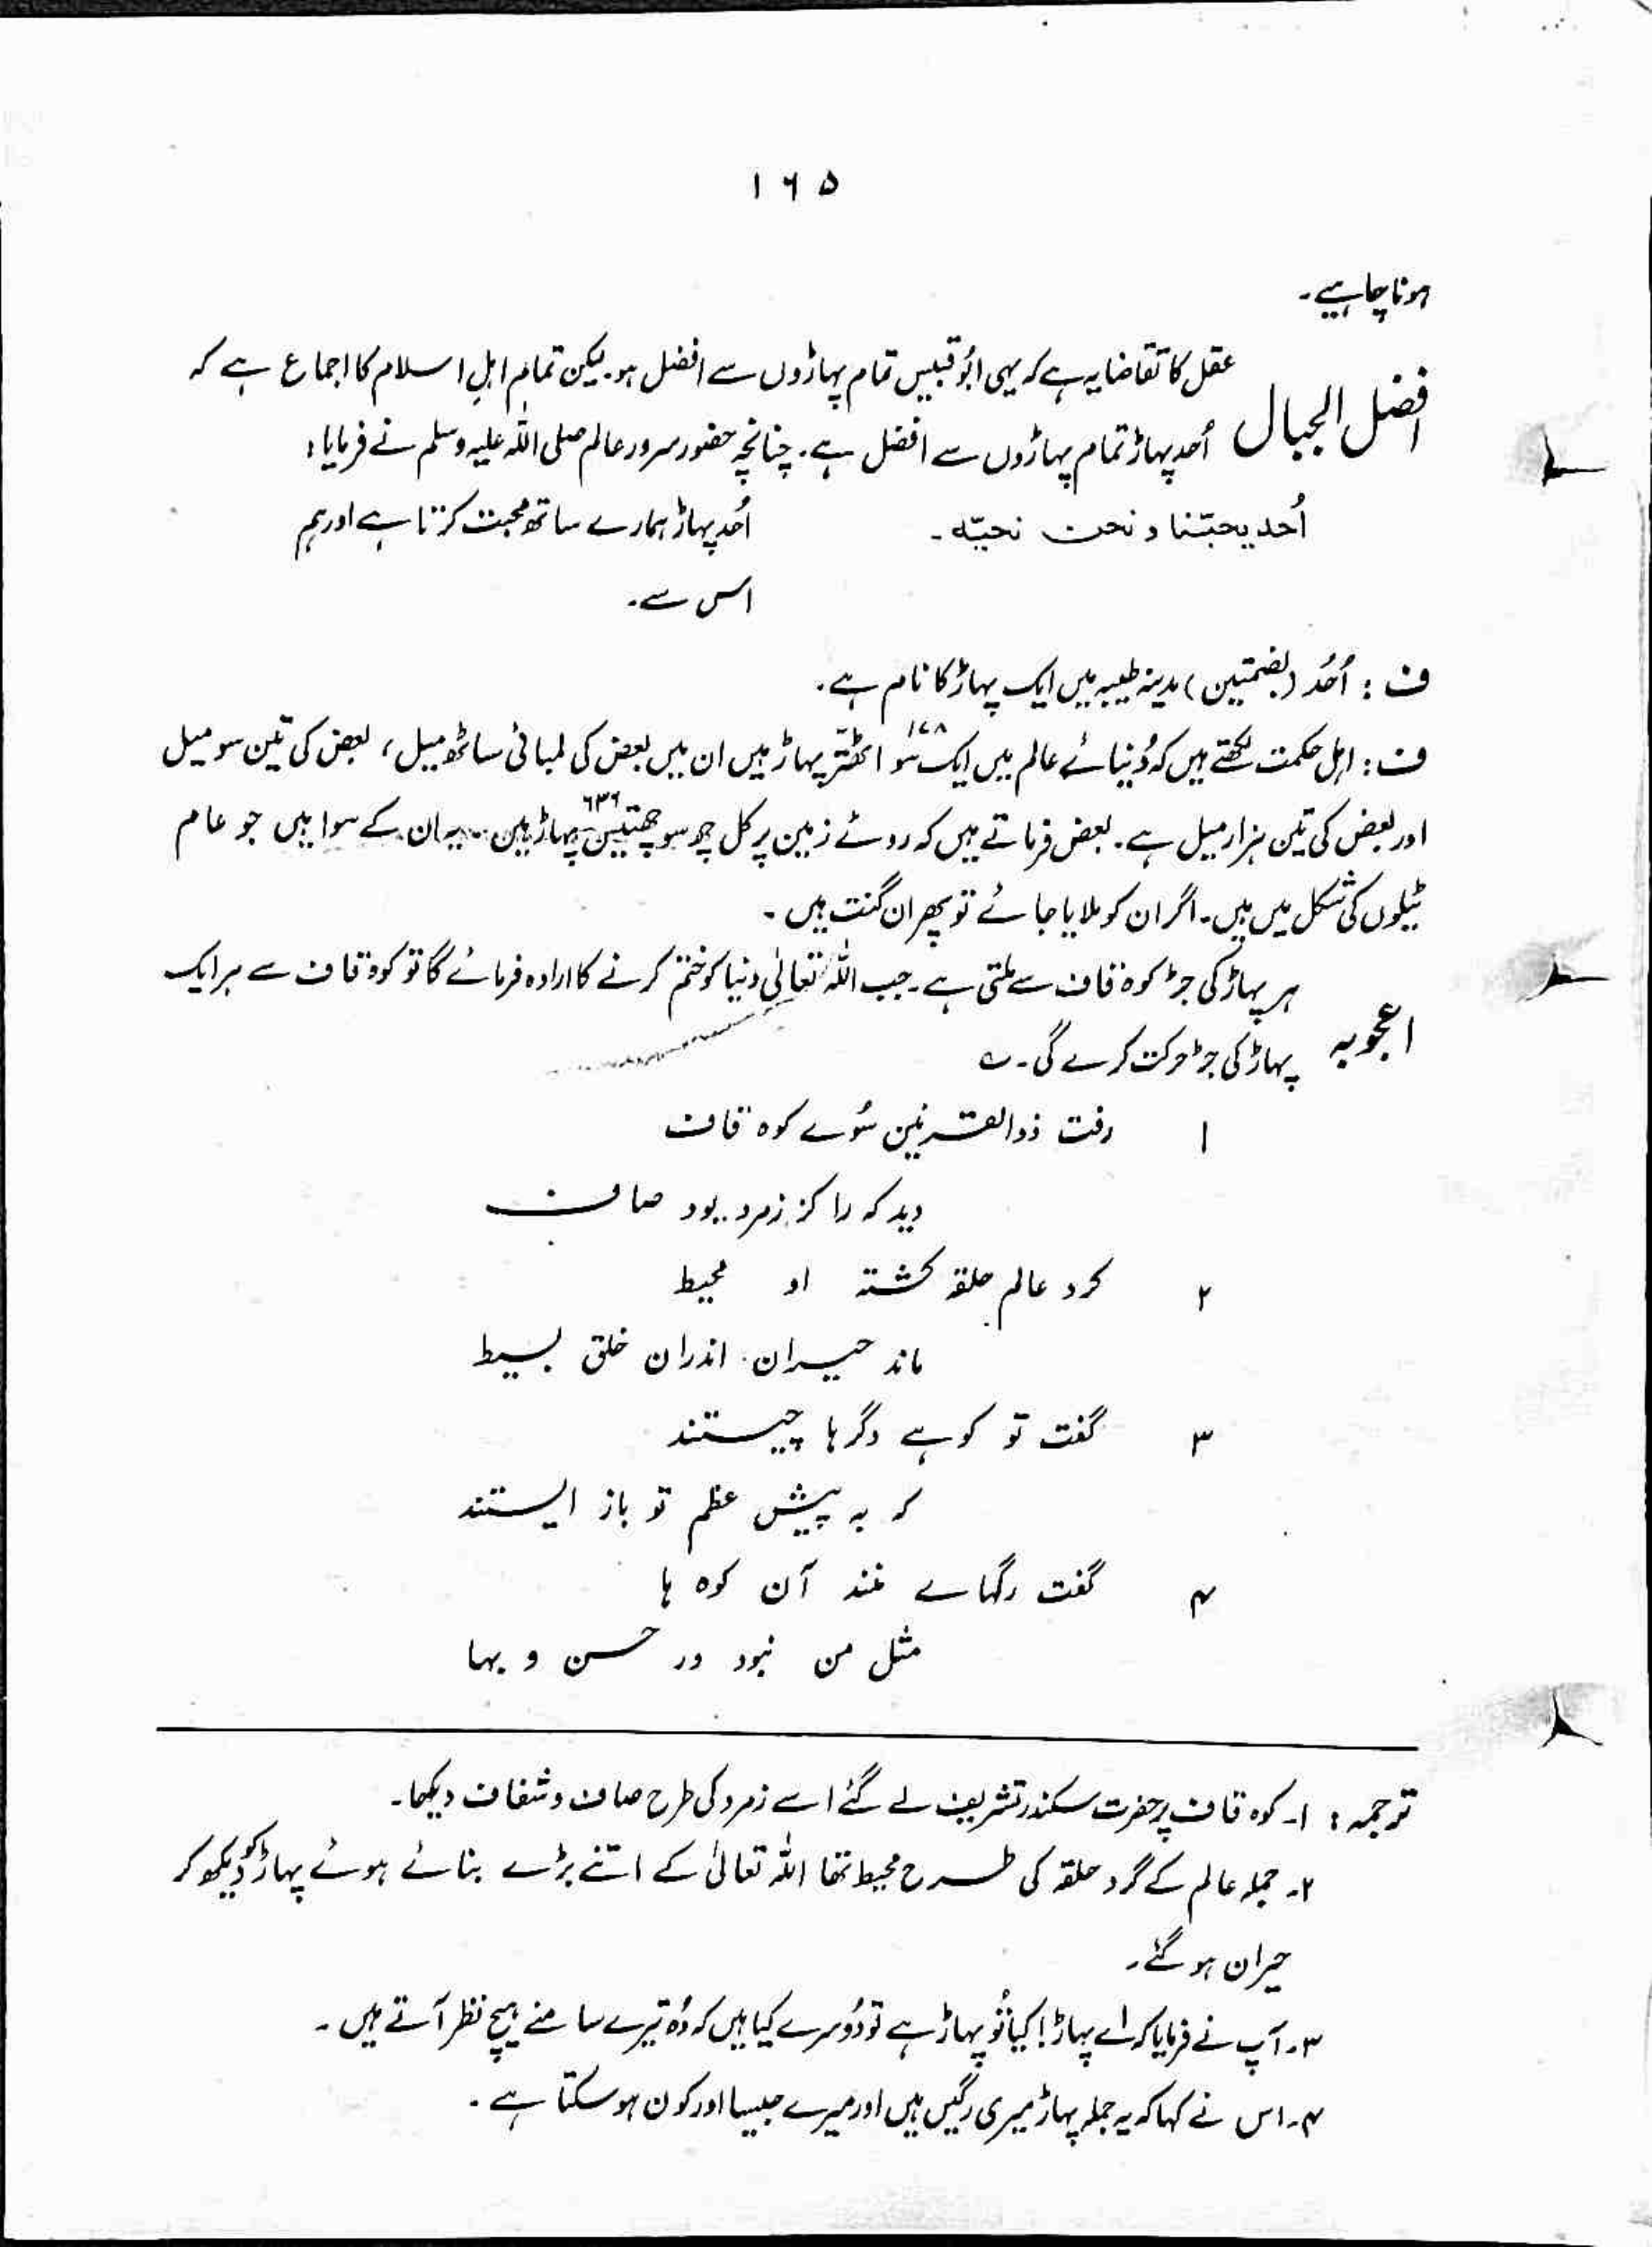 ۱۶۵
ہونا چاہیے۔
افضل الجبال
عقل کا تقاضا یہ ہے کہ یہی ابُو قبیس تمام پہاڑوں سے افضل ہو۔ لیکن تمام اہلِ اسلام کا اجماع ہے کہ
اُحد پہاڑ تمام پہاڑوں سے افضل ہے۔ چنانچہ حضور سرور عالم صلی اللہ علیہ وسلم نے فرمایا:
اُحد یحبّنا و نحن نحبّه۔ اُحد پہاڑ ہمارے ساتھ محبت کرتا ہے اور ہم
اس سے۔
ف : اُحُد (بضمتین) مدینہ طیبہ میں ایک پہاڑ کا نام ہے۔
ف : اہل حکمت لکھتے ہیں کہ دُنیائے عالم میں ایک سَو اٹھتّر ۱۷۸ پہاڑ ہیں ان میں بعض کی لمبائی ساٹھ میل، بعض کی تین سو میل
اور بعض کی تین ہزار میل ہے۔ بعض فرماتے ہیں کہ روئے زمین پر کل چھ سو چھتیس ۶۳۶ پہاڑ ہیں۔ یہ ان کے سوا ہیں جو عام
ٹیلوں کی شکل میں ہیں۔ اگر ان کو ملایا جائے تو پھر ان گنت ہیں۔
اعجوبہ
ہر پہاڑ کی جڑ کوہ قاف سے ملتی ہے۔ جب اللہ تعالیٰ دنیا کو ختم کرنے کا ارادہ فرمائے گا تو کوہ قاف سے ہر ایک
پہاڑ کی جڑ حرکت کرے گی۔ ؎
۱ رفت ذوالقرنین سُوے کوہ قاف
دید کہ را کز زمرد بود صاف
۲ گرد عالم حلقہ گشتہ او محیط
ماند حیران اندران خلق بسیط
۳ گفت تو کوہے دگرہا چیستند
کہ بہ پیش عظم تو باز ایستند
۴ گفت رگہاے مَنند آن کوہ ہا
مثل من نبود در حسن و بہا
ترجمہ : ۱۔ کوہ قاف پر حضرت سکندر تشریف لے گئے اسے زمرد کی طرح صاف و شفاف دیکھا۔
۲۔ جملہ عالم کے گرد حلقہ کی طرح محیط تھا اللہ تعالیٰ کے اتنے بڑے بنائے ہوئے پہاڑ کو دیکھ کر
حیران ہو گئے۔
۳۔ آپ نے فرمایا کہ اے پہاڑ! کیا تُو پہاڑ ہے تو دُوسرے کیا ہیں کہ وُہ تیرے سامنے ہیچ نظر آتے ہیں۔
۴۔ اس نے کہا کہ یہ جملہ پہاڑ میری رگیں ہیں اور میرے جیسا اور کون ہو سکتا ہے۔